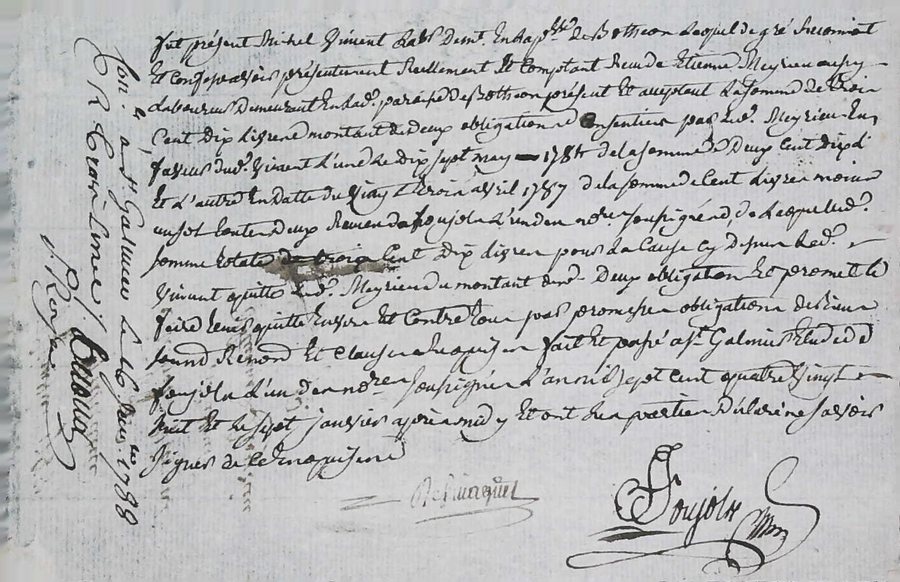 fut présent Michel Vincent habt. demt. En la psse. de Bothéon Lequel de gré Reconnoit
Et Confesse avoir présentement Reellement Et Comptant Receu de Etienne Meyrieu aussy
Laboureur Demeurant En lad. paroisse de Bothéon présent Et acceptant La somme de trois
Cent Dix Livres le montant de deux obligations Consenties par led. Meyrieu En
faveur dud. Vincent L'une Le Dix sept may 1784 de la somme de Deux Cent Dix L
Et L'autre En datte du Vingt trois avril 1787 de la somme de Cent Livres moins
un sol Contre Deux Receues de foujols L'un des nores. soussignés, de Laquelle d.
somme totale de trois Cent Dix Livres pour La Cause Cy dessus Led.
Vincent quitte Led. Meyrieu du montant des Deux obligation Et promet le
faire tenir quitte Envers Et Contre tous par promesse obligations de biens
soumd Renond Et Clauses Requises fait Et passé a St. Galmier Etude de
foujols L'un des nores soussignés L'an mil sept cent quatre Vingt
huit Et Le sept janvier après midy Et ont Les parties Déclaré ne savoir
signer de Ce Enquises
foujols
Con. a St Galmier Le 16 janv. 1788
R